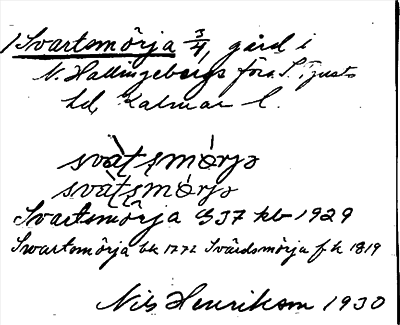 1 Svartsmörja 3/4, gård i
N. Hallingebergs förs. S. Tjusts
hd, Kalmar l.
svàt̨s̨mórjə
svàt̨s̨mórjə
Svartsmörja 337 kb 1929
Swartsmörja bk 1772 Svärdsmörja fk 1819
Nils Henrikson 1930